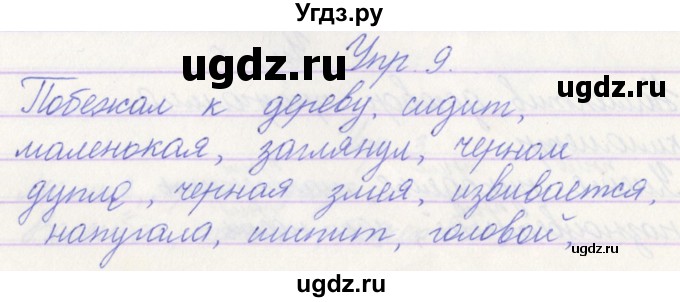 Угдз.ру
ugdz.ru Упр. 9.
Побежал к дереву, сидит,
маленькая, заглянул, черном
дупле, черная змея, извивается,
напугала, шипит, головой,
ugdz.ru ugdz.ru
ugdz.ru